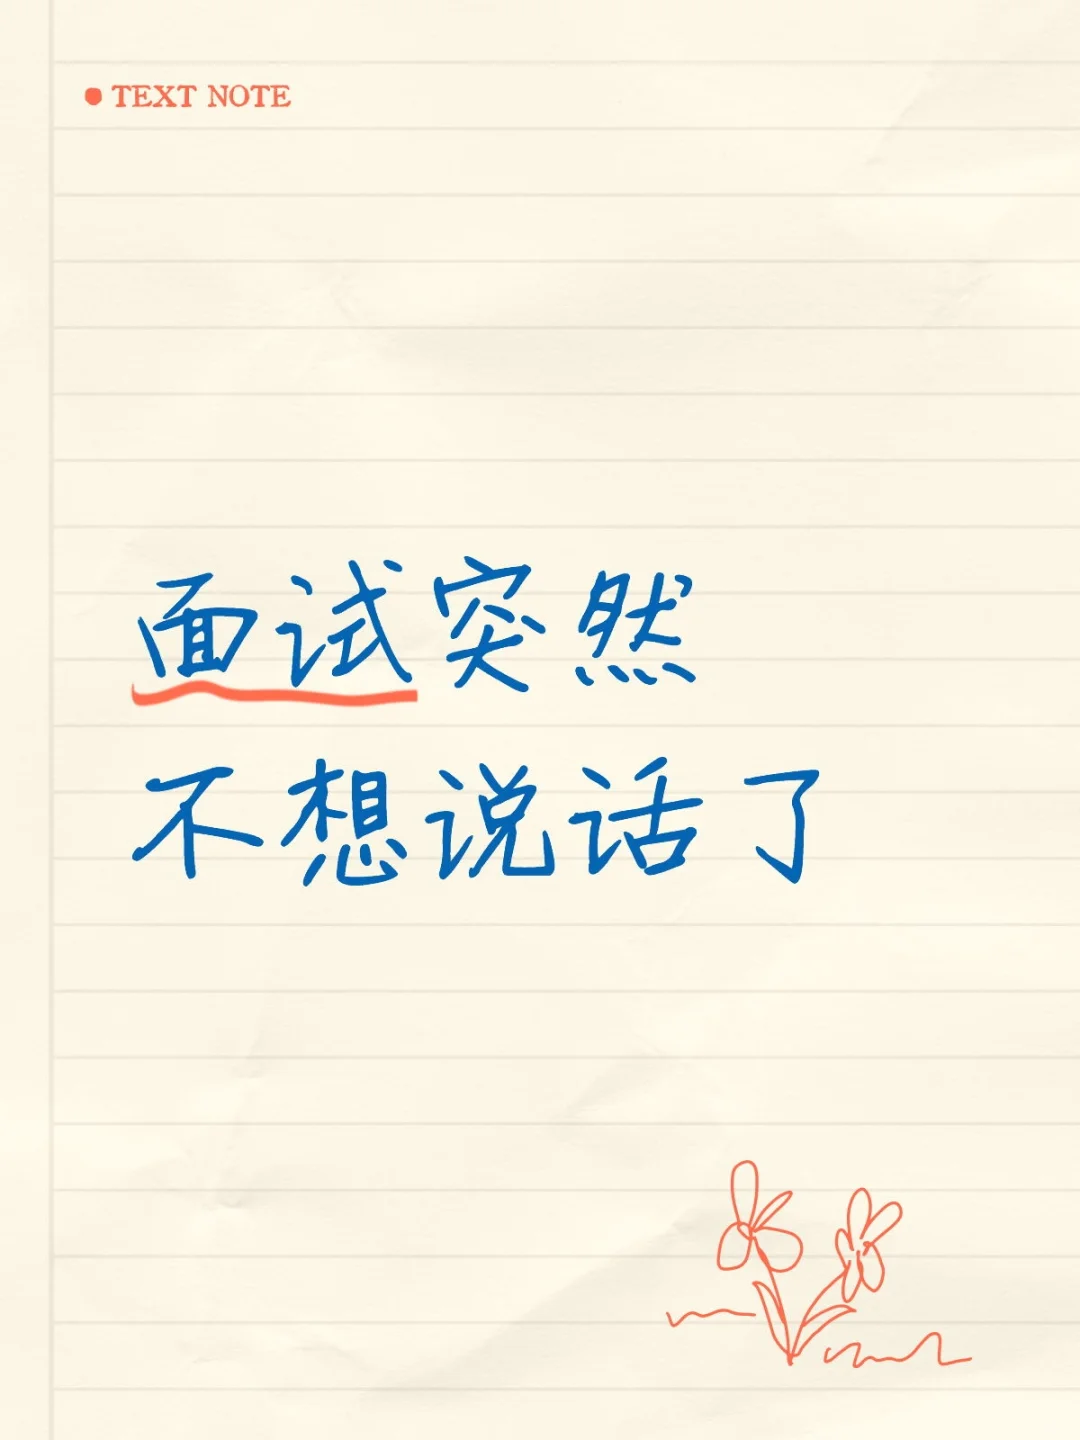 TEXT NOTE
面试突然
不想说话了